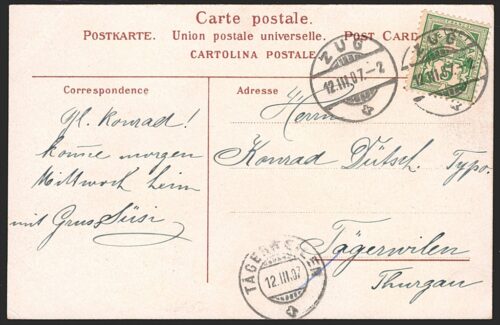 Carte postale.
POSTKARTE. Union postale universelle. POST CARD
CARTOLINA POSTALE
Correspondence
Adresse
Gl. Konrad!
komme morgen
Mittwoch heim
mit Gruss Süsi
Herrn
Konrad Dütsch. Typo.
Tägerwilen
Thurgau
ZUG
12.III.07.-2
ZUG
5
12.III.07